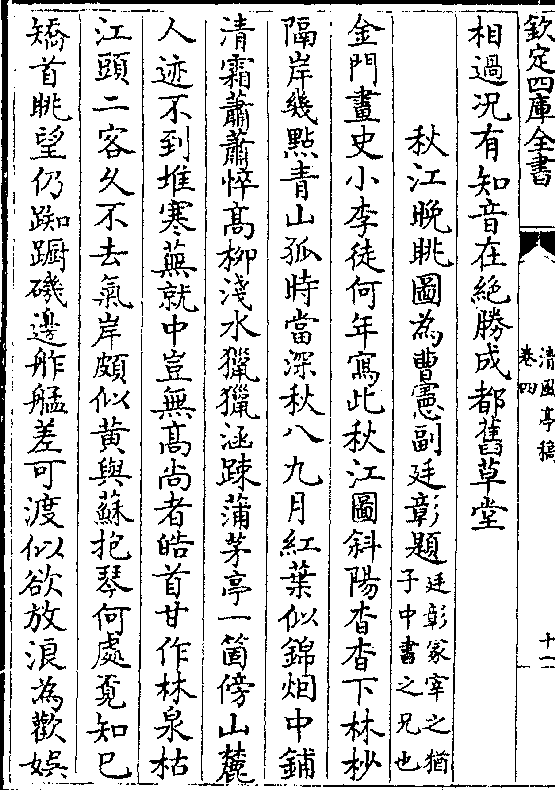 欽定四庫全書
清風亭稿
卷四
十一
相過况有知音在絶勝成都舊草堂
秋江晚眺圖為曹憲副廷彰題廷彰冢宰之猶子中書之兄也
金門畫史小李徒何年寫此秋江圖斜陽杳杳下林杪
隔岸幾點青山孤時當深秋八九月紅葉似錦烟中鋪
清霜蕭蕭悴髙柳淺水獵獵涵踈蒲茅亭一箇傍山麓
人迹不到堆寒蕪就中豈無髙尚者皓首甘作林泉枯
江頭二客久不去氣岸頗似黄與蘇抱琴何處覓知已
矯首眺望仍踟蹰磯邊舴艋差可渡似欲放浪為歡娯